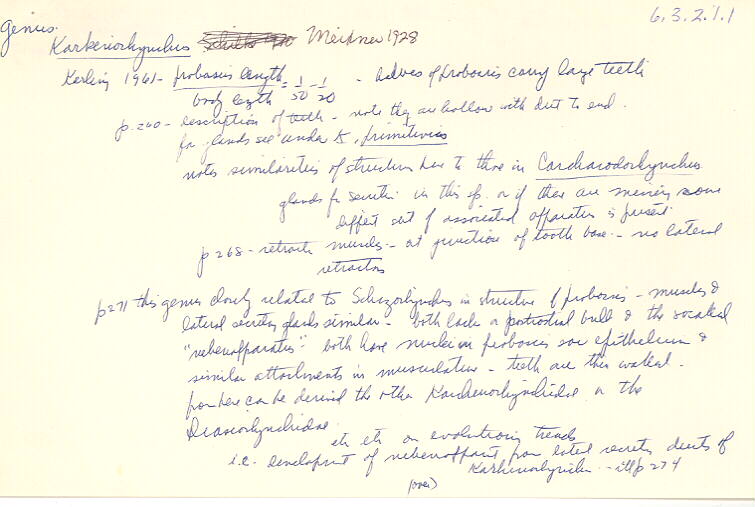 6.3.2.1.1
Genus.
Karkinorhynchus Meixner 1928
Karling 1961 - proboscis length / body length = 1/50 - 1/20 - halves of proboscis carry large teeth
p.260 - description of teeth - note they are hollow with duct to end.
for glands see under K. primitivus
notes similarities of structure here to those in Carcharodorhynchus
glands for secretion in this sp. or if there are merely some
diff't sort of associated apparatus is present
p 268 - retractor muscles - at junction of tooth base - no lateral
retractors
p 271 this genus closely related to Schizorhynchus in structure of proboscis - muscles &
lateral secretory glands similar - both lack a postrostral bulb & the so called
"nebenapparatus" both have nuclei in proboscis epithelium &
similar attachments in musculature - teeth are thin walled.
from here can be derived the other Karkinorhynchidae or the
Diascorhynchidae.
etc etc on evolutionary trends
i.e. development of nebenapparat from lateral secretory ducts of
Karkinorhynchus - ill p 274
(over)